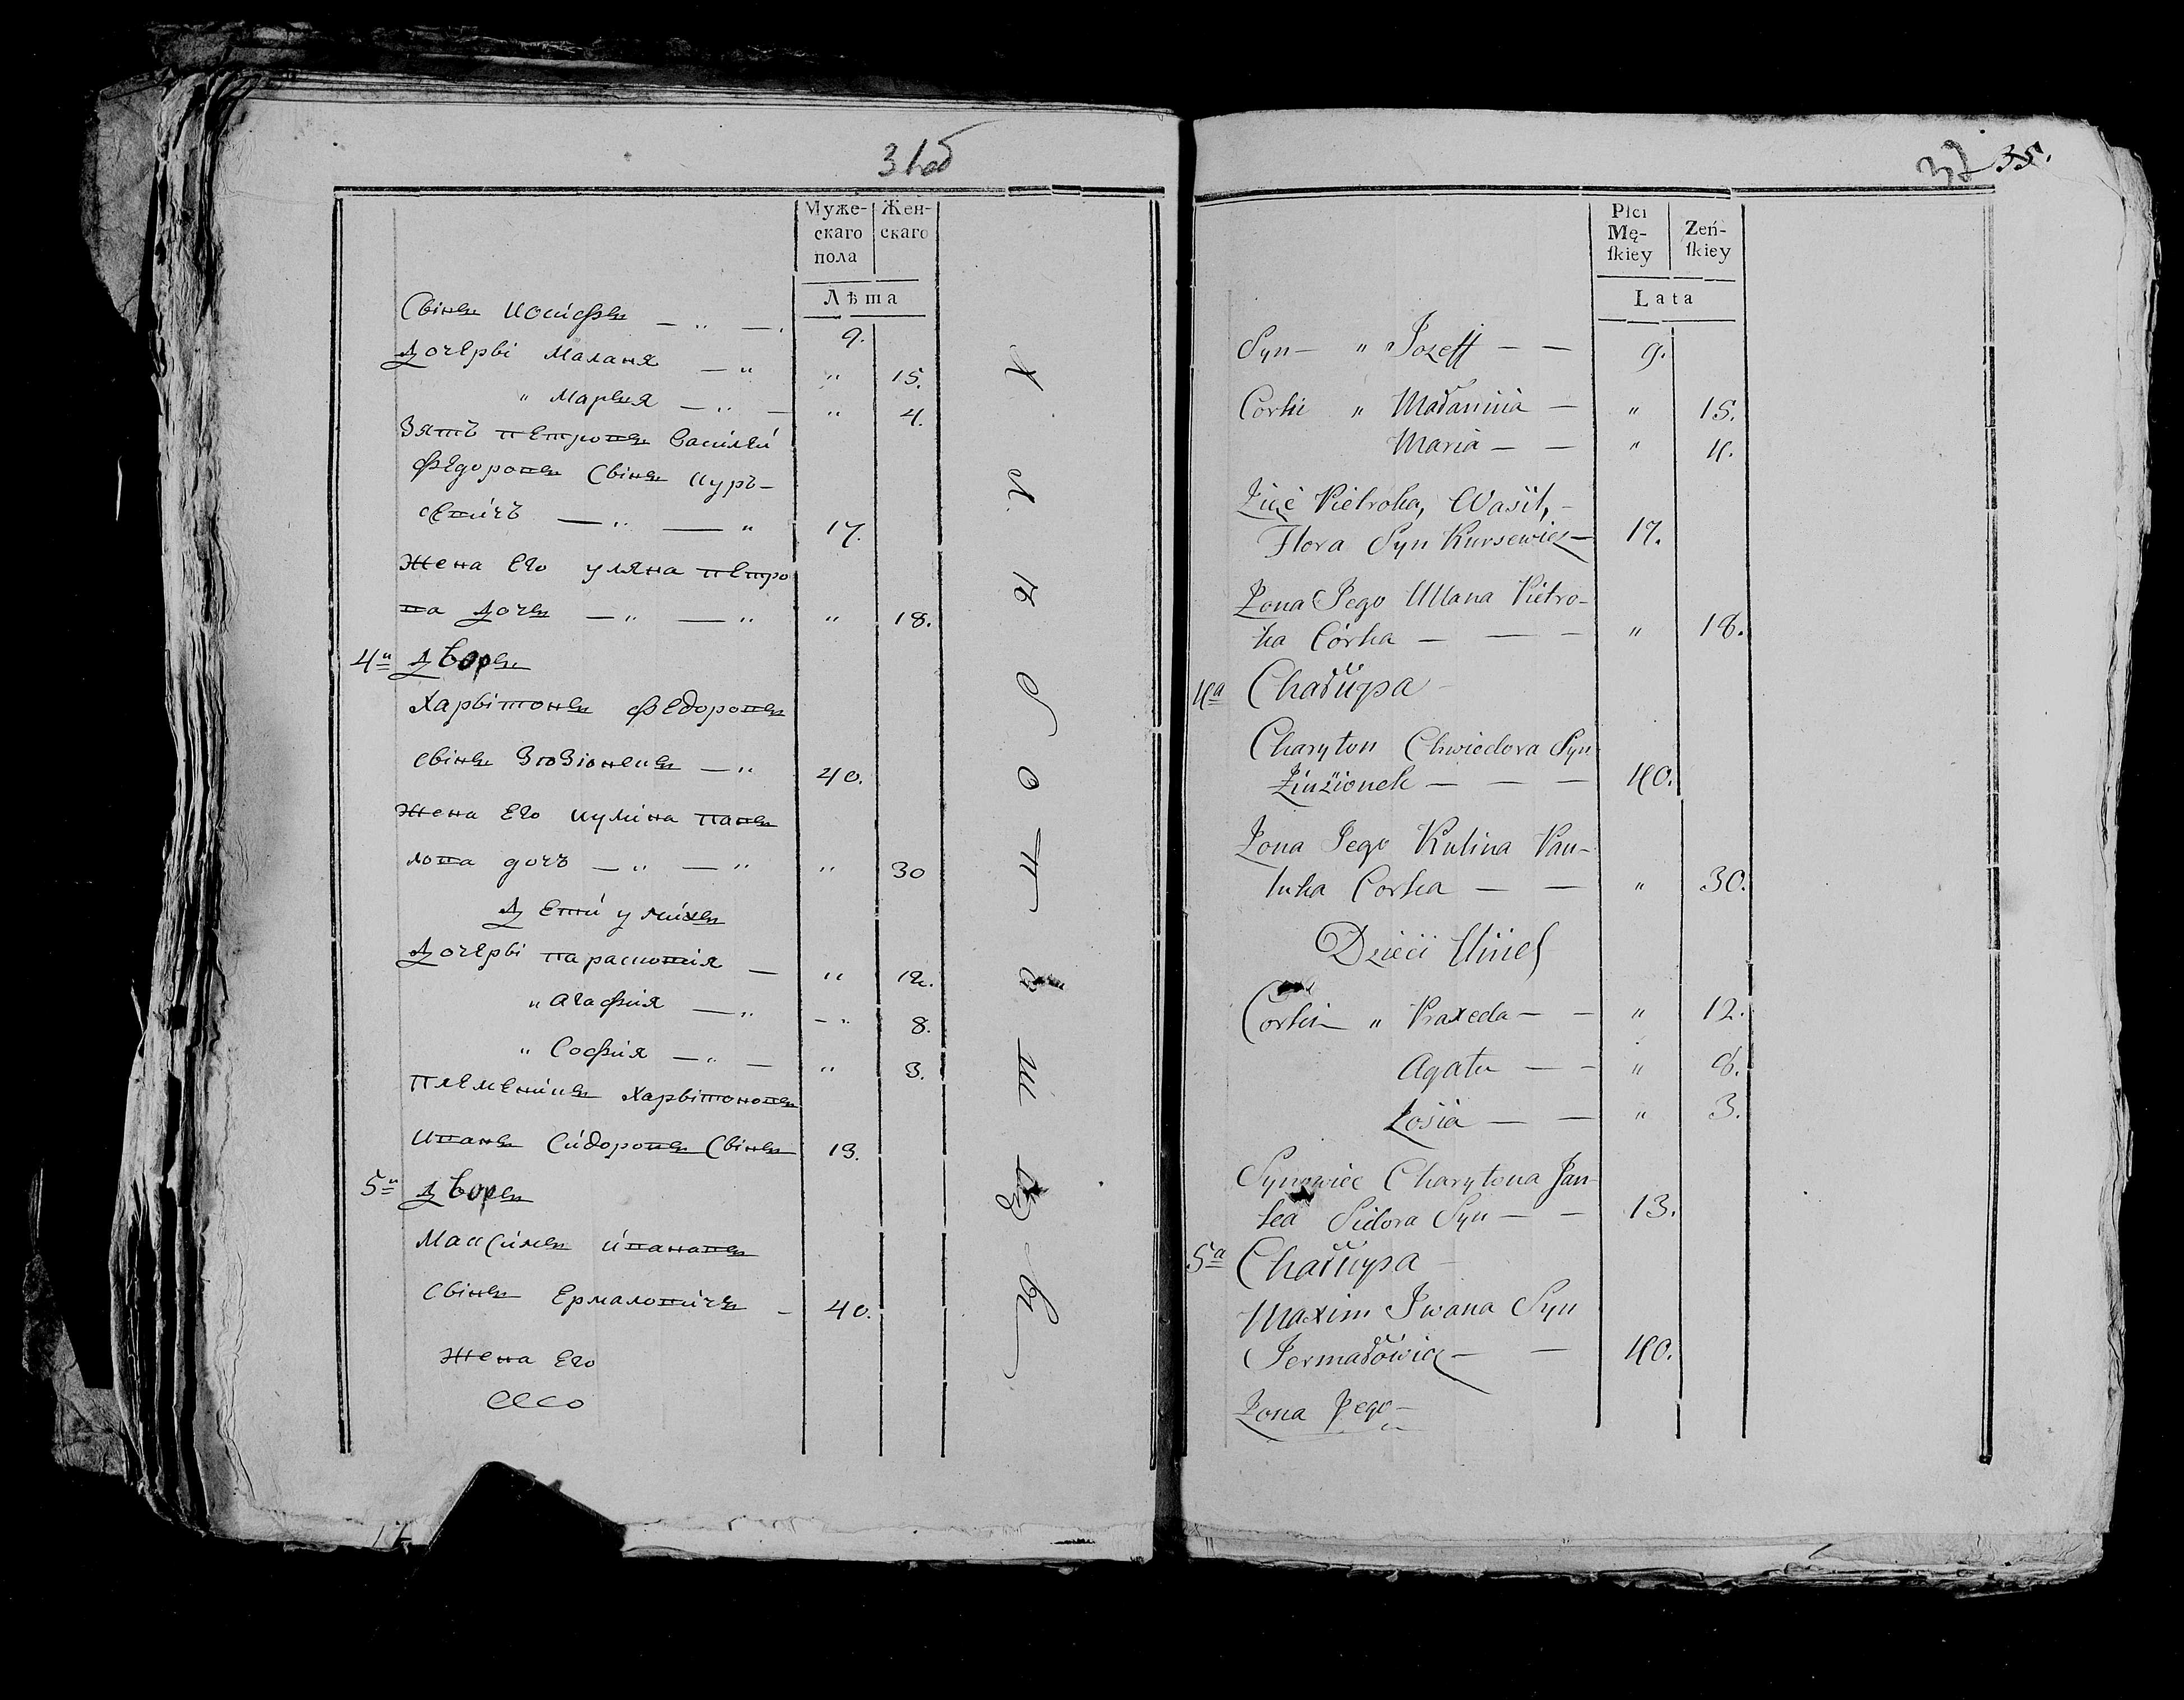 31об
Муже- Жен-
скаго скаго
пола
Лѣта
Сынъ Иосифъ — „ — 9.
Дочеры Маланя — „ „ 15.
„ Марья — „ — „ 4.
Зять Петровъ Василей
Федоровъ Сынъ Курь-
севичъ — „ — „ 17.
Жена Его Уляна Петро
ва Дочь — „ — „ „ 18.
4й Дворъ
Харытонъ Федоровъ
сынъ Зюзюнекъ — „ 40.
Жена Его Кулина Пав
лова дочъ — „ — „ „ 30
Дети у нихъ
Дочеры Парасковия — „ 12.
„ Агафия — „ — „ 8.
„ София — „ — „ 3.
Племеникъ Харытоновъ
Иванъ Сидоровъ Сынъ 13.
5й Дворъ
Максимъ Ивановъ
Сынъ Ермаловичъ — 40.
Жена Его
32 35.
Płci
Mę- Zeń-
ſkiey ſkiey
Lata
Syn — „ Jozeff — — 9.
Corki „ Małannia — „ 15.
Maria — — „ 4.
Zięć Pietroka, Wasil, —
Flora Syn Kursewicz — 17.
Zona Jego Ullana Pietro-
ka Córka — — — „ 18.
4a Chałupa —
Charyton Chwiedora Syn
Ziuzionek — — — 40.
Zona Jego Kulina Pau-
luka Corka — — „ 30.
Dzieci Unich
Corki „ Praxeda — — „ 12.
Agata — — „ 8.
Zosia — — „ 3.
Synowiec Charytona Jan-
ka Sidora Syn — — 13.
5a Chałupa —
Maxim Iwana Syn
Jermałowicz — — 40.
Zona Jego —